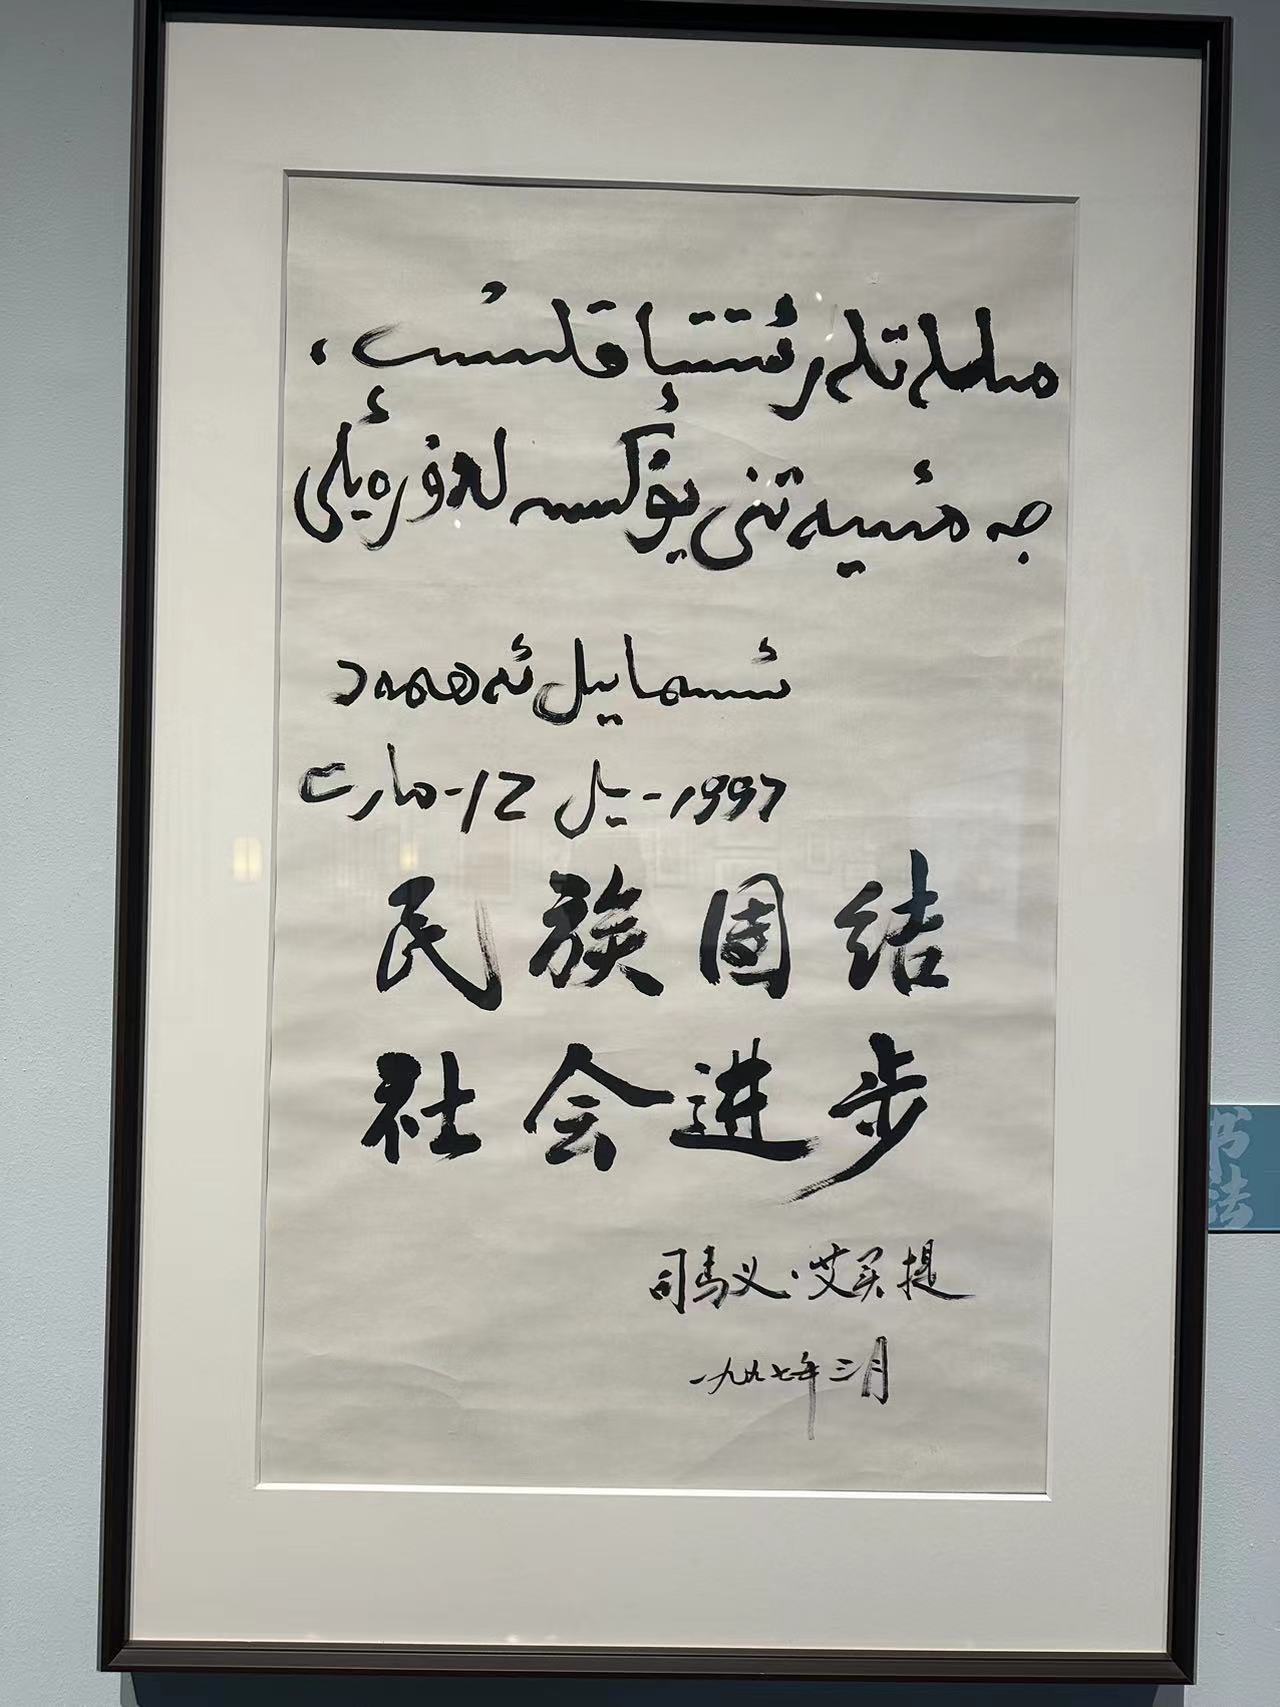 مىللەتلەر ئىتتىپاقلىشىپ،
جەمئىيەتنى يۈكسەلدۈرەيلى
ئىسمايىل ئەھمەد
1997-يىل 12-مارت
民族团结
社会进步
司马义·艾买提
一九九七年三月
书法